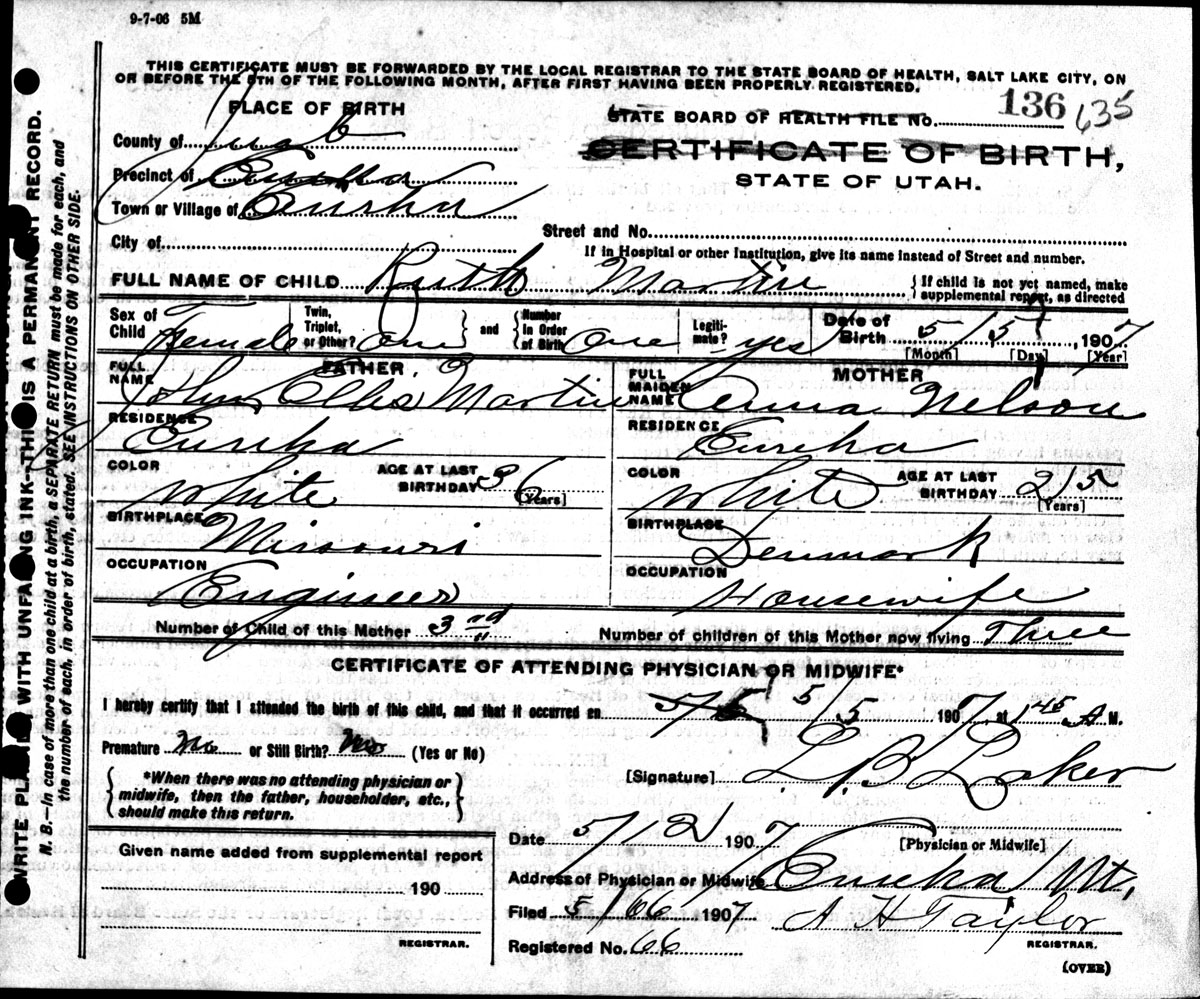 9-7-06 5M
THIS CERTIFICATE MUST BE FORWARDED BY THE LOCAL REGISTRAR TO THE STATE BOARD OF HEALTH, SALT LAKE CITY, ON
OR BEFORE THE 5TH OF THE FOLLOWING MONTH, AFTER FIRST HAVING BEEN PROPERLY REGISTERED.
PLACE OF BIRTH
STATE BOARD OF HEALTH FILE No. 136 635
County of Juab
CERTIFICATE OF BIRTH,
Precinct of Eureka
STATE OF UTAH.
Town or Village of Eureka
Street and No.
City of
If in Hospital or other Institution, give its name instead of Street and number.
FULL NAME OF CHILD Ruth Martin
{ If child is not yet named, make
supplemental report, as directed
Sex of Child Female
Twin, Triplet, or Other? One
and
Number in Order of Birth One
Legitimate? yes
Date of Birth 5/5, 1907
[Month] [Day] [Year]
FATHER
FULL NAME John Ellis Martin
MOTHER
FULL MAIDEN NAME Anna Nelson
RESIDENCE Eureka
RESIDENCE Eureka
COLOR White
AGE AT LAST BIRTHDAY 36 [Years]
COLOR White
AGE AT LAST BIRTHDAY 25 [Years]
BIRTHPLACE Missouri
BIRTHPLACE Denmark
OCCUPATION Engineer
OCCUPATION Housewife
Number of Child of this Mother 3rd
Number of children of this Mother now living Three
CERTIFICATE OF ATTENDING PHYSICIAN OR MIDWIFE*
I hereby certify that I attended the birth of this child, and that it occurred on 5/5 1907, at 1 45 A. M.
Premature No or Still Birth? No (Yes or No)
*When there was no attending physician or
midwife, then the father, householder, etc.,
should make this return.
[Signature] L. B. Laker
[Physician or Midwife]
Given name added from supplemental report
190
REGISTRAR.
Date 5/12/ 1907
Address of Physician or Midwife Eureka Ut.
Filed 5/ 1907 A H Taylor
REGISTRAR.
Registered No. 66
(OVER)
WRITE PLAINLY WITH UNFADING INK—THIS IS A PERMANENT RECORD.
N. B.—In case of more than one child at a birth, a SEPARATE RETURN must be made for each, and
the number of each, in order of birth, stated. SEE INSTRUCTIONS ON OTHER SIDE.